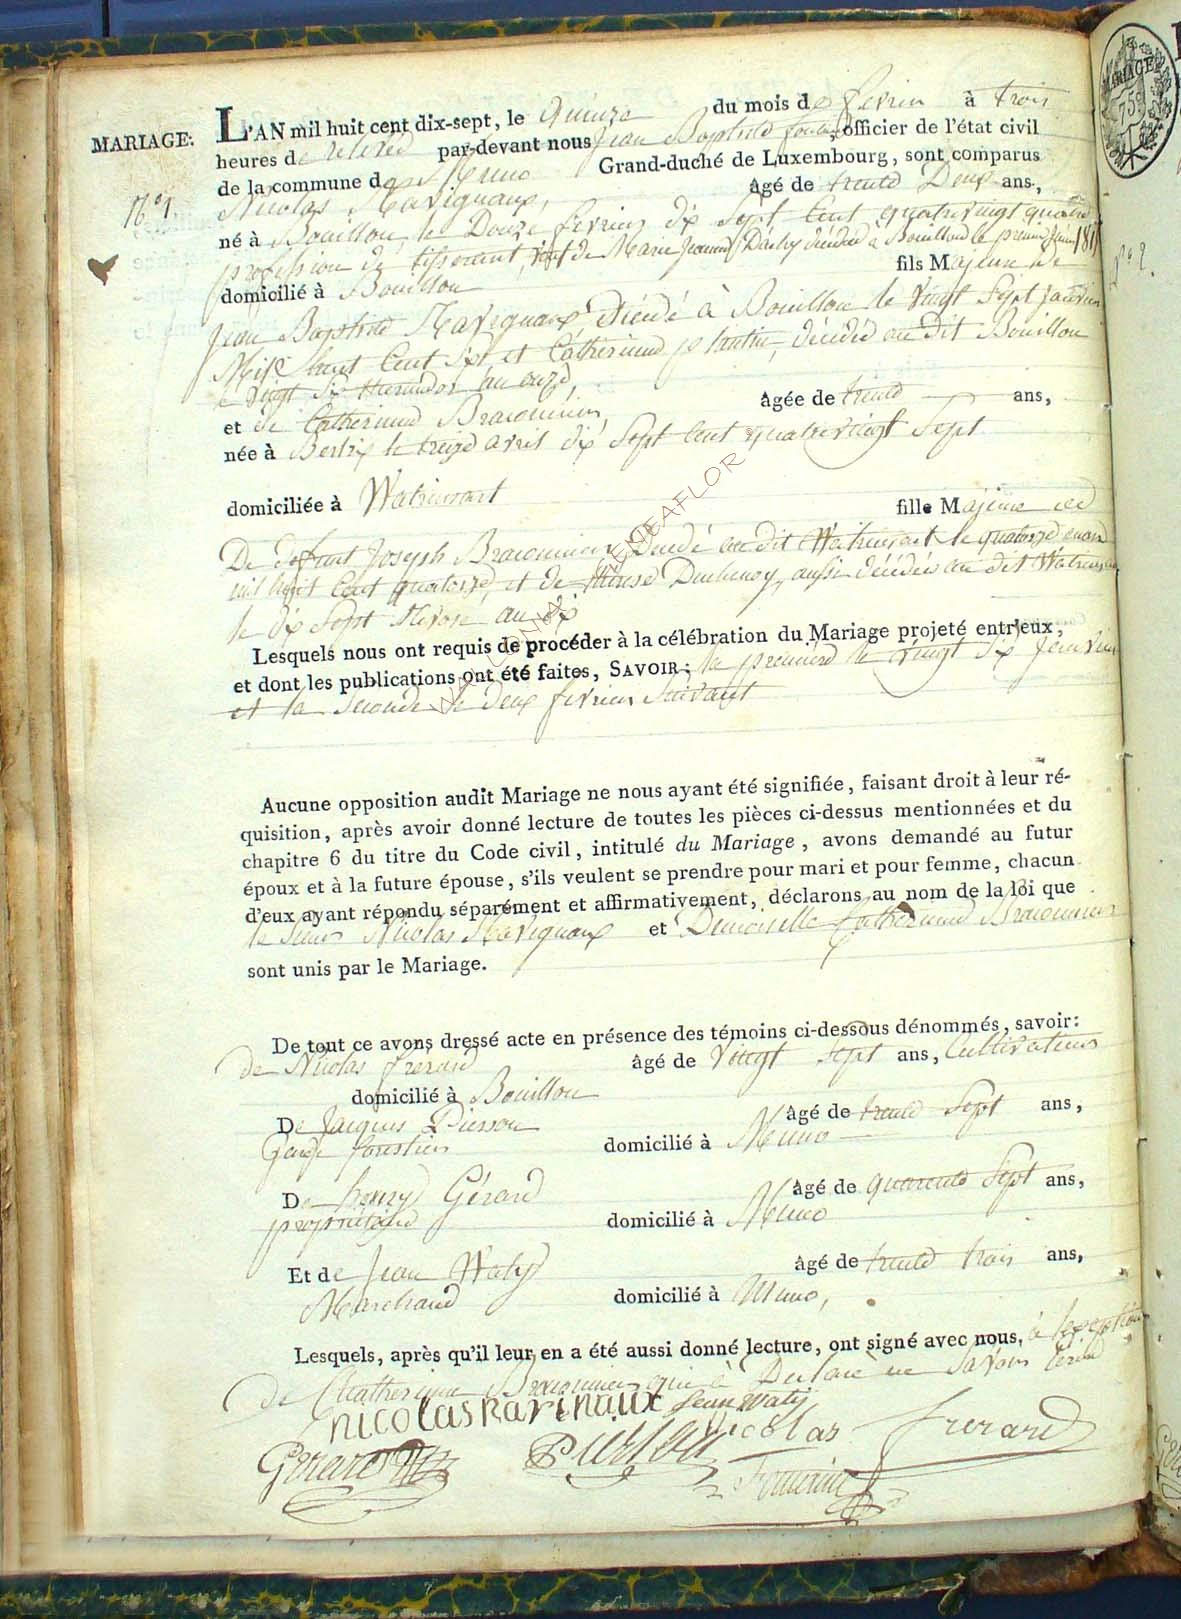 MARIAGE:
N° 1.
L'AN mil huit cent dix-sept, le quinze du mois de fevrier à trois
heures de relevée par-devant nous Jean Baptiste officier de l'état civil
de la commune de Muno Grand-duché de Luxembourg, sont comparus
Nicolas Ravignaux, âgé de trente Deux ans,
né à Bouillon, le Douze fevrier dix Sept Cent quatrevingt quatre
profession de tisserant, veuf de Marie Jeanne décédée à Bouillon le premier 181
domicilié à Bouillon fils Majeur de
Jean Baptiste Ravignaux décédé à Bouillon le vingt Sept Janvier
Mil huit Cent Sept et Catherinne décédée au dit Bouillon
le vingt six thermidor an onze,
et de Catherinne Braconnier, âgée de trente ans,
née à Bertrix le treize avril dix Sept Cent quatrevingt Sept
domiciliée à Watrinsart fille Majeure
De defunt Joseph Braconnier Décédé au dit Watrinsart le quatorze
mil huit Cent quatorze, et de aussi décédée au dit Watrinsart
le dix Sept Nivose an dix
Lesquels nous ont requis de procéder à la célébration du Mariage projeté entr'eux,
et dont les publications ont été faites, SAVOIR: la première le vingt six Janvier
et la Seconde le deux fevrier Suivant
GENEAFLOR
Aucune opposition audit Mariage ne nous ayant été signifiée, faisant droit à leur ré-
quisition, après avoir donné lecture de toutes les pièces ci-dessus mentionnées et du
chapitre 6 du titre du Code civil, intitulé du Mariage, avons demandé au futur
époux et à la future épouse, s'ils veulent se prendre pour mari et pour femme, chacun
d'eux ayant répondu séparément et affirmativement, déclarons au nom de la loi que
le Sieur Nicolas Ravignaux et Demoiselle Catherinne Braconnier
sont unis par le Mariage.
De tout ce avons dressé acte en présence des témoins ci-dessous dénommés, savoir:
de Nicolas frerard âgé de Vingt Sept ans, Cultivateur
domicilié à Bouillon
De Jacques Pierson âgé de trente Sept ans,
Garde forestier domicilié à Muno
De henry Gérard âgé de quarente Sept ans,
propriétaire domicilié à Muno
Et de Jean Waty âgé de trente trois ans,
Marchand domicilié à Muno,
Lesquels, après qu'il leur en a été aussi donné lecture, ont signé avec nous, à lexception
de Chatherinne Braconnier qui à Déclaré ne Savoir
nicolas Ravinaux Jean Waty
Gérard Pierson Nicolas frerard
MARIAGE
N° 2.